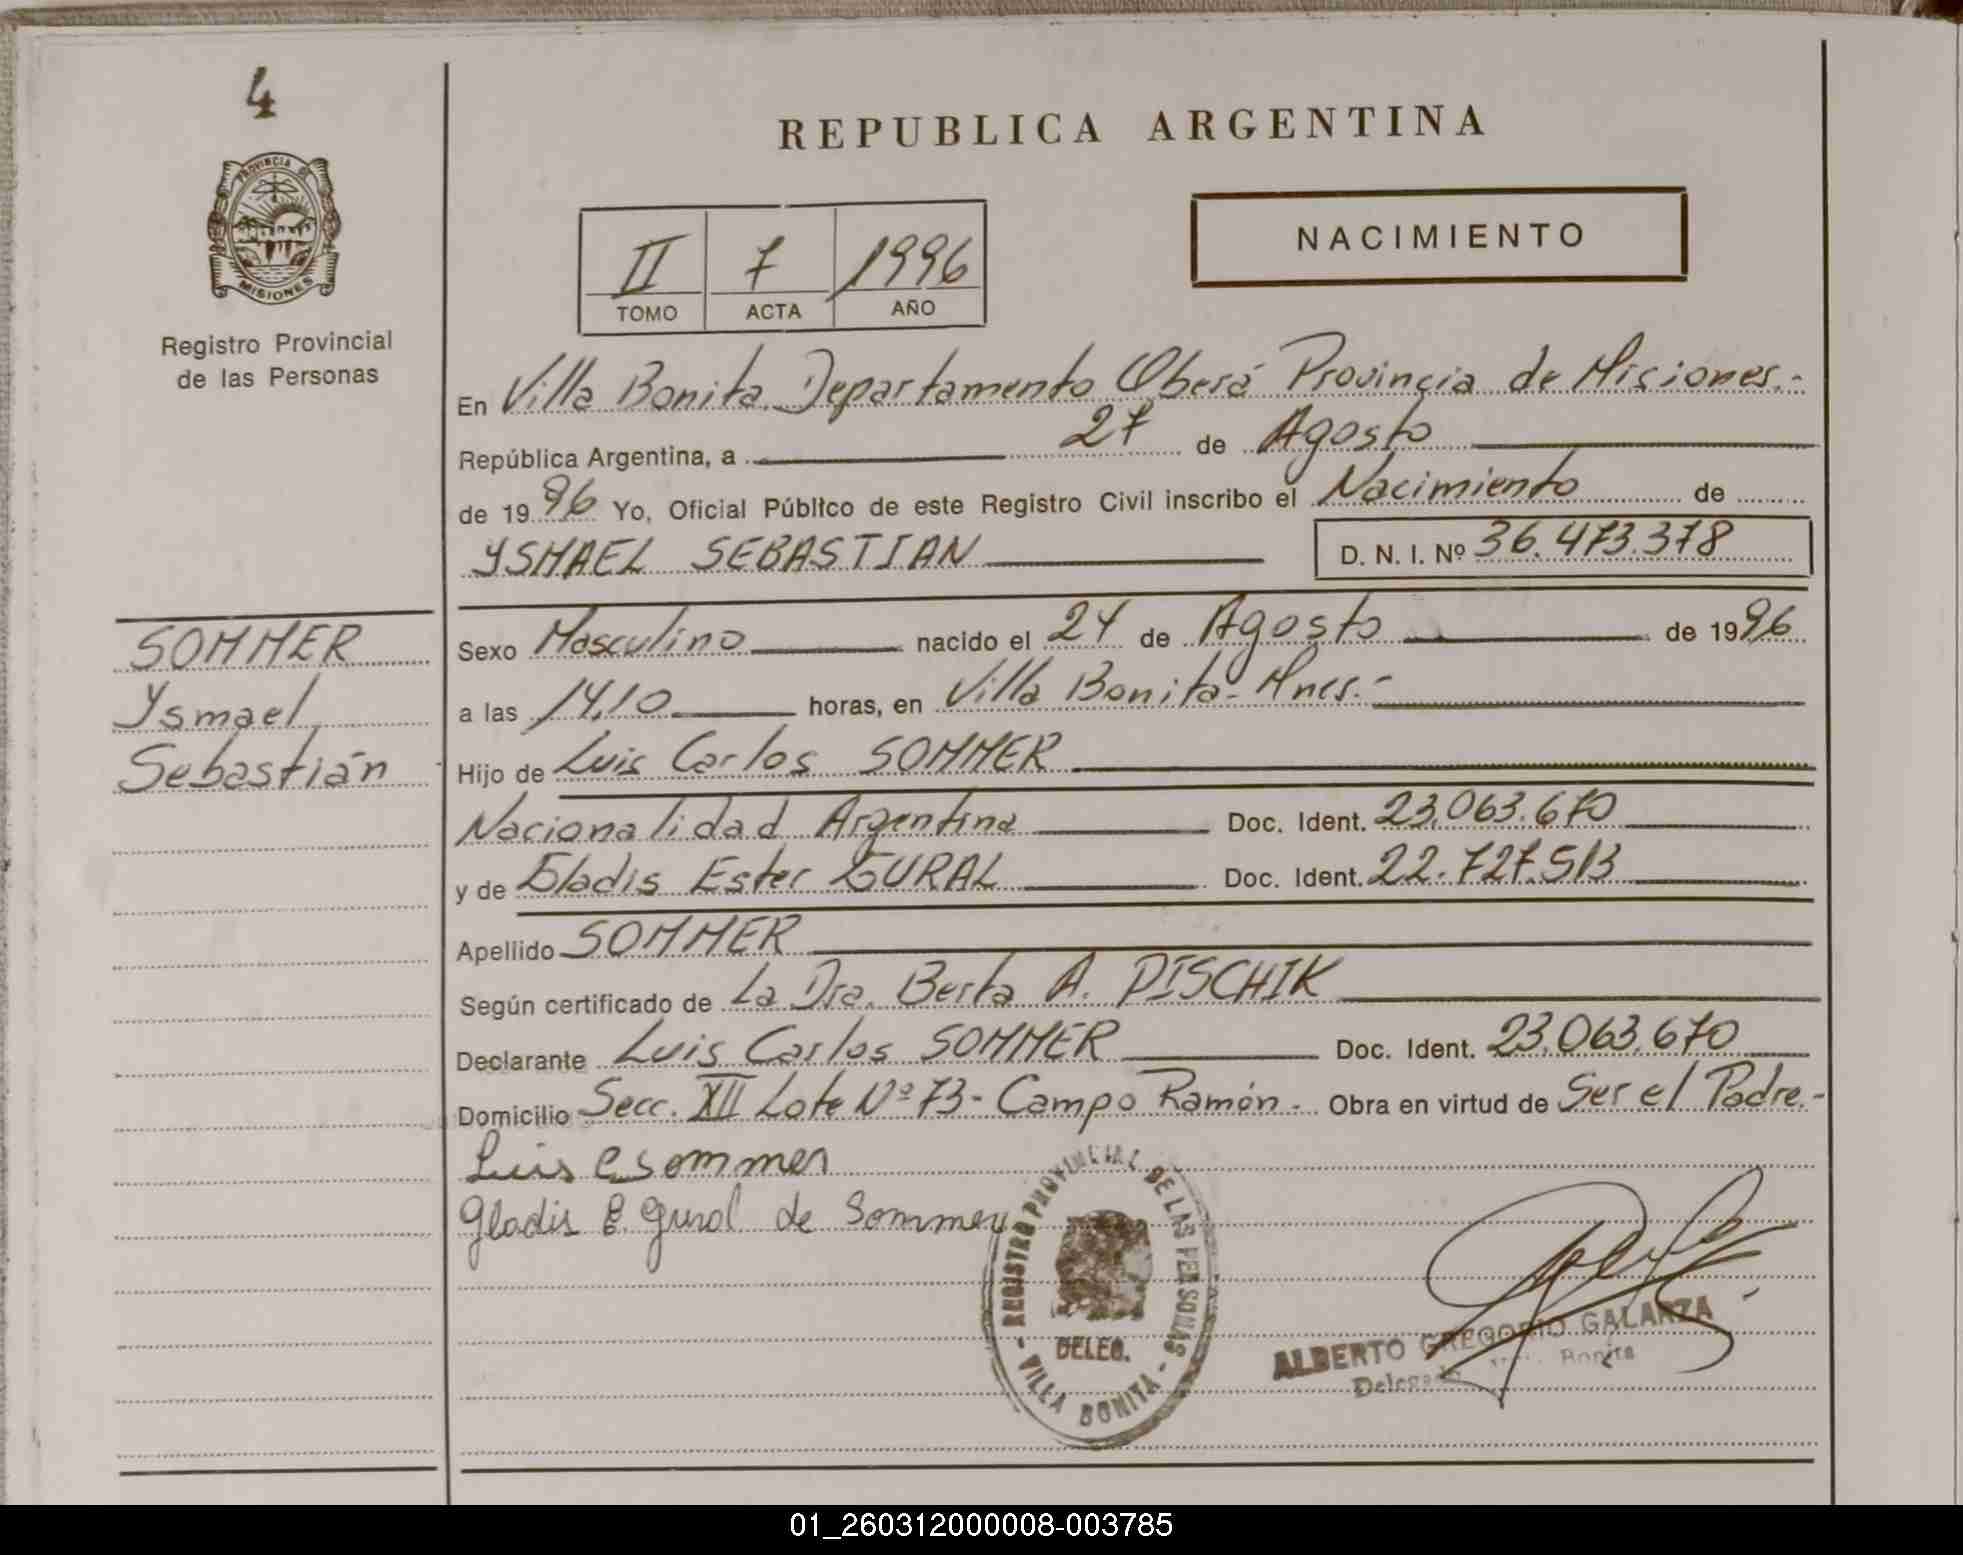 4
PROVINCIA DE
MISIONES
Registro Provincial
de las Personas
REPUBLICA ARGENTINA
NACIMIENTO
II 7 1996
TOMO ACTA AÑO
En Villa Bonita Departamento Oberá Provincia de Misiones.-
República Argentina, a 27 de Agosto
de 1996 Yo, Oficial Público de este Registro Civil inscribo el Nacimiento de
YSMAEL SEBASTIAN D. N. I. Nº 36.473.378
SOMMER
Ysmael
Sebastián
Sexo Masculino nacido el 24 de Agosto de 1996
a las 14,10 horas, en Villa Bonita- Mnes.-
Hijo de Luis Carlos SOMMER
Nacionalidad Argentina Doc. Ident. 23.063.670
y de Gladis Ester GURAL Doc. Ident. 22.727.513
Apellido SOMMER
Según certificado de La Dra. Berta A. PISCHIK
Declarante Luis Carlos SOMMER Doc. Ident. 23.063.670
Domicilio Secc. XII Lote Nº 73- Campo Ramón.- Obra en virtud de Ser el Padre.-
Luis C Sommer
Gladis E. Gural de Sommer
REGISTRO PROVINCIAL DE LAS PERSONAS
DELEG.
- VILLA BONITA -
ALBERTO GREGORIO GALARZA
Delegado Bonita
01_260312000008-003785